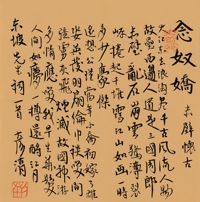 念奴嬌
赤壁懷古
大江東去浪淘盡千古風流人物
故壘西邊人道是三國周郎
赤壁亂石崩雲驚濤裂岸
捲起千堆雪江山如畫一時
多少豪傑
遙想公瑾當年小喬初嫁了雄
姿英發羽扇綸巾談笑間
強虜灰飛煙滅故國神游
多情應笑我早生華髮
人間如夢一樽還酹江月
東坡先生詞一首